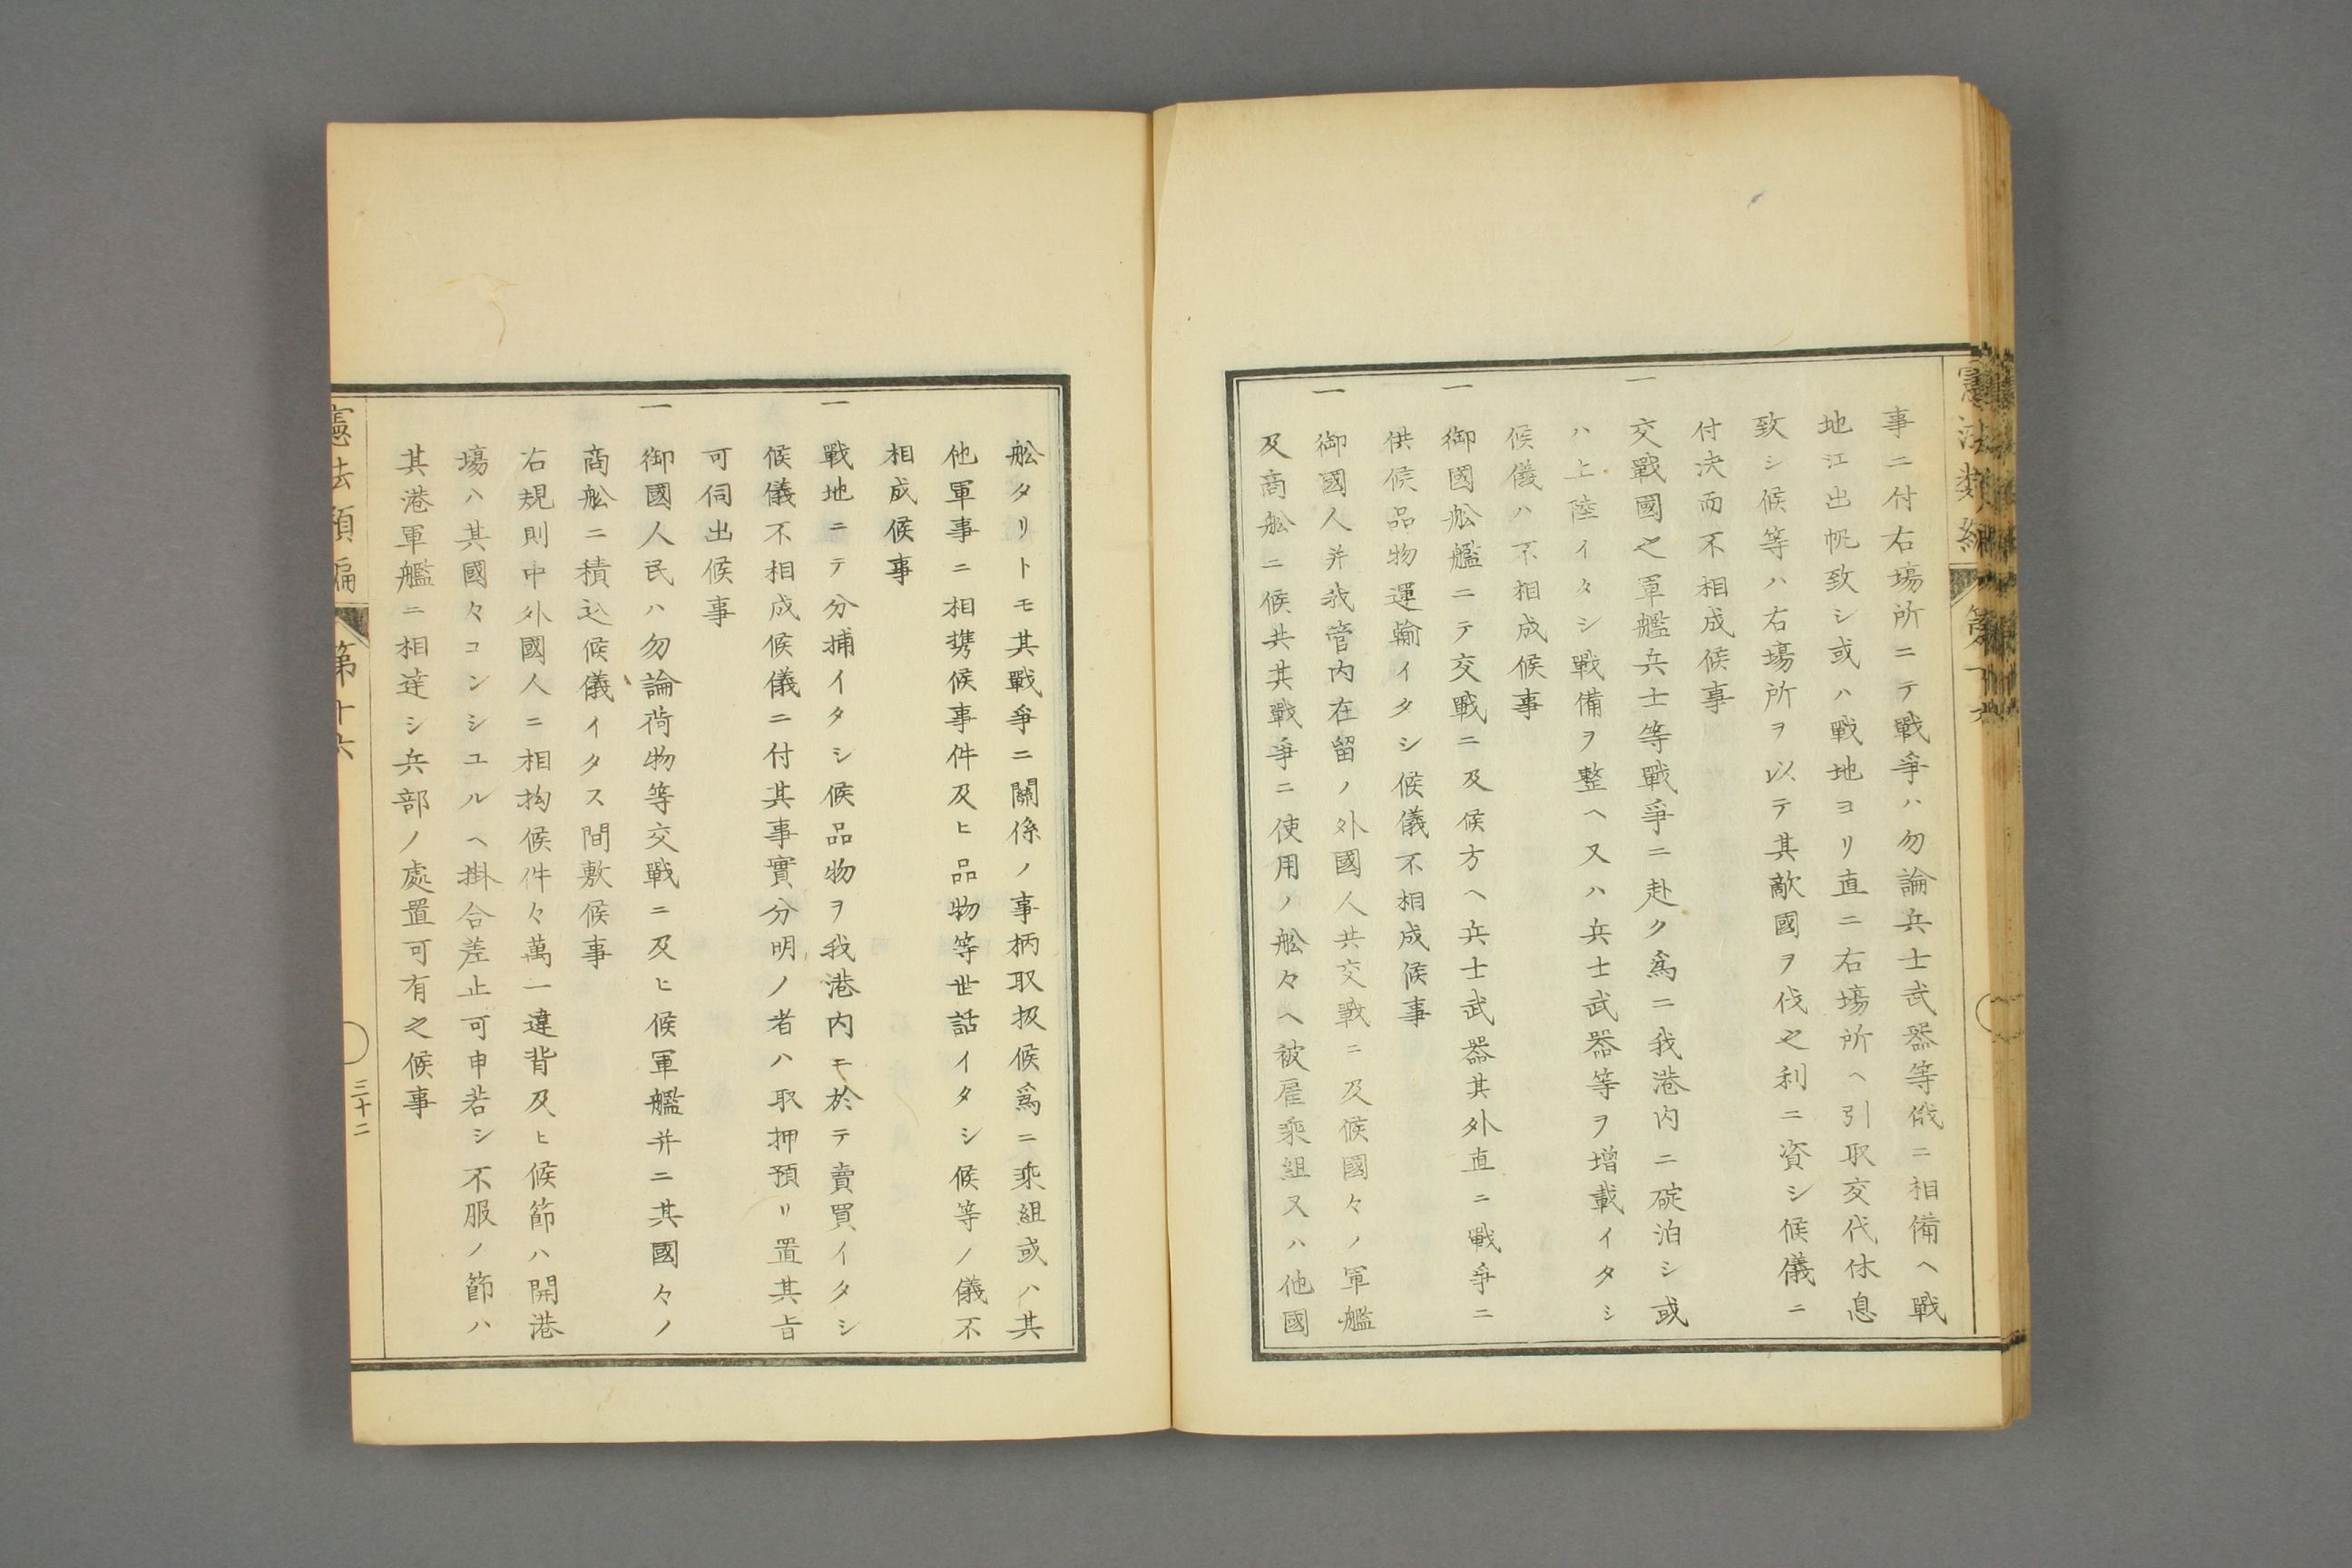 事ニ付右塲所ニテ戰爭ハ勿論兵士武器等俄ニ相備ヘ戰
地江出帆致シ或ハ戰地ヨリ直ニ右塲所ヘ引取交代休息
致シ候等ハ右塲所ヲ以テ其敵國ヲ伐之利ニ資シ候儀ニ
付决而不相成候事
一交戰國之軍艦兵士等戰爭ニ赴ク爲ニ我港内ニ碇泊シ或
ハ上陸イタシ戰備ヲ整ヘ又ハ兵士武器等ヲ增載イタシ
候儀ハ不相成候事
一御國舩艦ニテ交戰ニ及候方ヘ兵士武器其外直ニ戰爭ニ
供候品物運輸イタシ候儀不相成候事
一御國人并我管内在留ノ外國人共交戰ニ及候國々ノ軍艦
及商舩ニ候共其戰爭ニ使用ノ舩々ヘ被雇乘組又ハ他國
舩タリトモ其戰爭ニ關係ノ事柄取扱候爲ニ乘組或ハ其
他軍事ニ相携候事件及ヒ品物等世話イタシ候等ノ儀不
相成候事
一戰地ニテ分捕イタシ候品物ヲ我港内ニ於テ賣買イタシ
候儀不相成候儀ニ付其事實分明ノ者ハ取押預リ置其旨
可伺出候事
一御國人民ハ勿論荷物等交戰ニ及ヒ候軍艦并ニ其國々ノ
商舩ニ積込候儀イタス間敷候事
右規則中外國人ニ相拘候件々萬一違背及ヒ候節ハ開港
塲ハ其國々コンシユルヘ掛合差止可申若シ不服ノ節ハ
其港軍艦ニ相達シ兵部ノ處置可有之候事
憲法類編 第十六
三十二